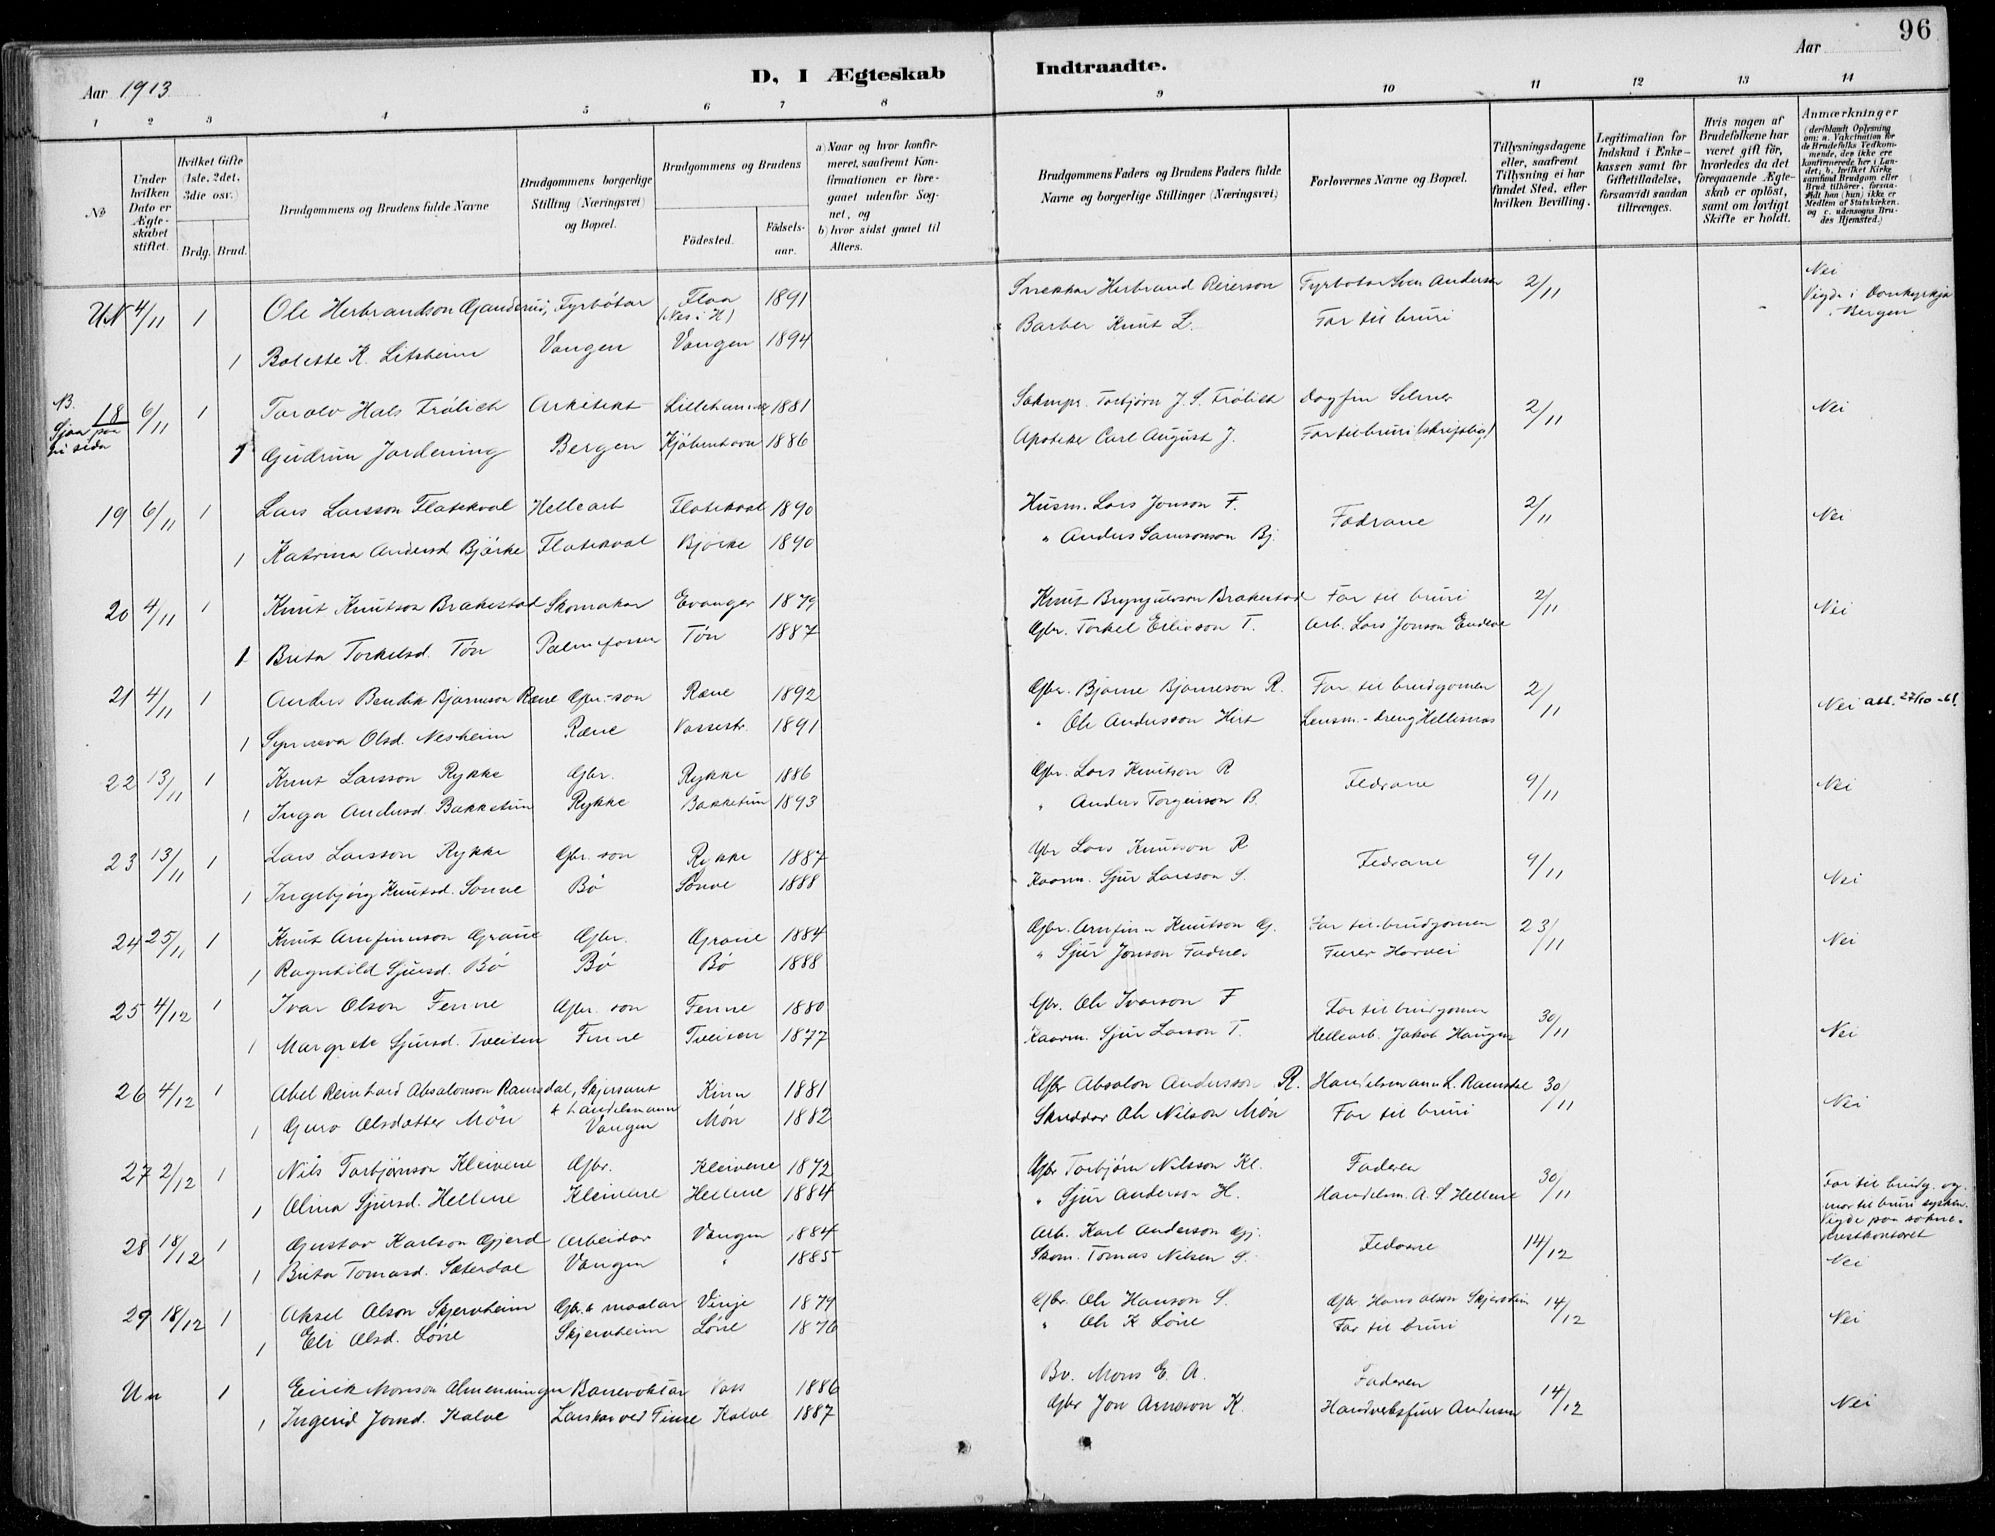 96
Aar 1913
D, I Ægteskab Indtraadte.
Aar
1 2 3 4 5 6 7 8 9 10 11 12 13 14
No
Under hvilken Dato er Ægteskabet stiftet.
Hvilket Gifte (1ste, 2det, 3die osv.)
Brdg. Brud.
Brudgommens og Brudens fulde Navne
Brudgommens borgerlige Stilling (Næringsvei) og Bopæl.
Brudgommens og Brudens
Födested.
Födselsaar.
a) Naar og hvor konfirmeret, saafremt Konfirmationen er foregaaet udenfor Sognet, og
b) hvor sidst gaaet til Alters.
Brudgommens Faders og Brudens Faders fulde Navne og borgerlige Stillinger (Næringsvei)
Forlovernes Navne og Bopæl.
Tillysningsdagene eller, saafremt Tillysning ei har fundet Sted, efter hvilken Bevilling.
Legitimation for Indskud i Enkekassen samt for Giftetilladelse, forsaavidt saadan tiltrænges.
Hvis nogen af Brudefolkene har været gift för, hvorledes da det foregaaende Ægteskab er oplöst, samt om lovligt Skifte er holdt.
Anmærkninger
(deriblandt Oplysning om: a. Vakcination for de Brudefolks Vedkommende, der ikke ere konfirmerede her i Landet; b. hvilket Kirkesamfund Brudgom eller Brud tilhörer, forsaavidt han (hun) ikke er Medlem af Statskirken. og c. udensogns Brudes Hjemsted.)
UN 4/11 1 Ole Herbrandson Fyrbøtar Flaa (Nes i H) 1891 Herbrand Reierson Fyrbøtar Sven Anderson 2/11 Nei
Vigde i Domkyrkja i Bergen
1 Bolette K. Litsheim Vangen Vangen 1894 Barber Knut L. Far til bruri
NB. 18 6/11 1 Torolv Hals Frölich Arkitekt Lillehammer 1881 Torbjörn J. S. Frölich Dagfin Selmer 2/11 Nei
Sjaa paa ni sida
1 Gudrun Jordening Bergen Kjöbenhavn 1886 Apoteker Carl August J. Far til bruri (skriftlig)
19 6/11 1 Lars Larsson Flatekval Hellearb Flatekval 1890 Husm. Lars Jonson F. Fadrane 2/11 Nei
1 Katrina Andersd Björke Flatekval Björke 1890 " Anders Samsonson Bj.
20 4/11 1 Knut Knutson Brakestad Skomakar Evanger 1879 Knut Brynjulvson Brakestad Far til bruri 2/11 Nei
1 Brita Torkelsd. Tön Palmefossen Tön 1887 Gbr. Torkel Erlivson T. Arb. Lars Jonson Endeve
21 4/11 1 Anders Bendik Bjarneson Ræne Gbr.-son Ræne 1892 Gbr. Bjarne Bjarneson R. Far til brudgomen 2/11 Nei att. 27/10 - 61
1 Synneva Olsd. Nesheim Ræne Vossestr. 1891 " Ole Andersson Hirt Lensm.-dreng Hellesnes
22 13/11 1 Knut Larsson Rykke Gbr. Rykke 1886 Gbr. Lars Knutson R Fedrane 9/11 Nei
1 Inga Andersd. Bakketun Rykke Bakketun 1893 " Anders Torgeirson B.
23 13/11 1 Lars Larsson Rykke Gbr. son Rykke 1887 Gbr Lars Knutson R Fedrane 9/11 Nei
1 Ingebjörg Knutsd. Sonve Bö Sonve 1888 Kaarm. Sjur Larsson S.
24 25/11 1 Knut Arnfinnson Grane Gbr. Grane 1884 Gbr. Arnfinn Knutson G. Far til brudgomen 23/11 Nei
1 Ragnhild Sjursd. Bö Bö Bö 1888 " Sjur Jonson Fadnes Furer Horvei
25 4/12 1 Ivar Olson Fenne Gbr. son Fenne 1880 Gbr. Ole Ivarson F Far til brudgomen 30/11 Nei
1 Margrete Sjursd. Tveiten Fenne Tveiten 1877 Kaarm. Sjur Larson T. Hellearb. Jakob Haugen
26 4/12 1 Abel Reinhard Absalonson Ramsdal, Skjersant & handelsmann Kinn 1881 Gbr Absalon Andersson R. Handelsmann L. Ramsdal 30/11 Nei
1 Guro Olsdatter Mön Vangen Mön 1882 Skreddar Ole Nilson Mön Far til bruri
27 2/12 1 Nils Torbjørnson Kleivene Gbr. Kleivene 1872 Gbr Torbjörn Nilsson Kl. Faderen 30/11 Far til brudg. og mor til bruri sysken. Vigde paa sokneprestkontoret
1 Olina Sjursd. Hellene Kleivene Hellene 1884 " Sjur Anderson H. Handelsm. A. S Hellene
28 18/12 1 Gustav Karlson Gjerd Arbeidar Vangen 1884 Arb. Karl Anderson Gj. Fedrane 14/12 Nei
1 Brita Tomasd. Sæterdal Vangen " 1885 Skom. Tomas Nilsen S.
29 18/12 1 Aksel Olson Skjervheim Gbr. & maalar Vinje 1879 Gbr. Ole Hanson S. Gbr Hans Olson Skjervheim 14/12 Nei
1 Eli Olsd. Löne Skjervheim Löne 1876 " Ole K Löne Far til bruri
Un 1 Eirik Monson Almenningen Banevoktar Voss 1886 Bv. Mons E. A. Faderen 14/12 Nei
1 Ingerid Jonsd. Kalve ved Finse Kalve 1887 Gbr Jon Arneson K. Andersen